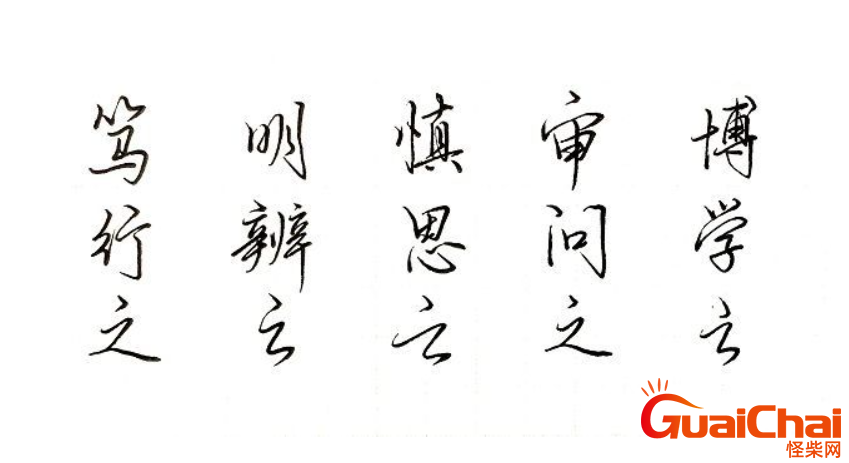 博学之
审问之
慎思之
明辨之
笃行之
GuaiChai
怪柴网